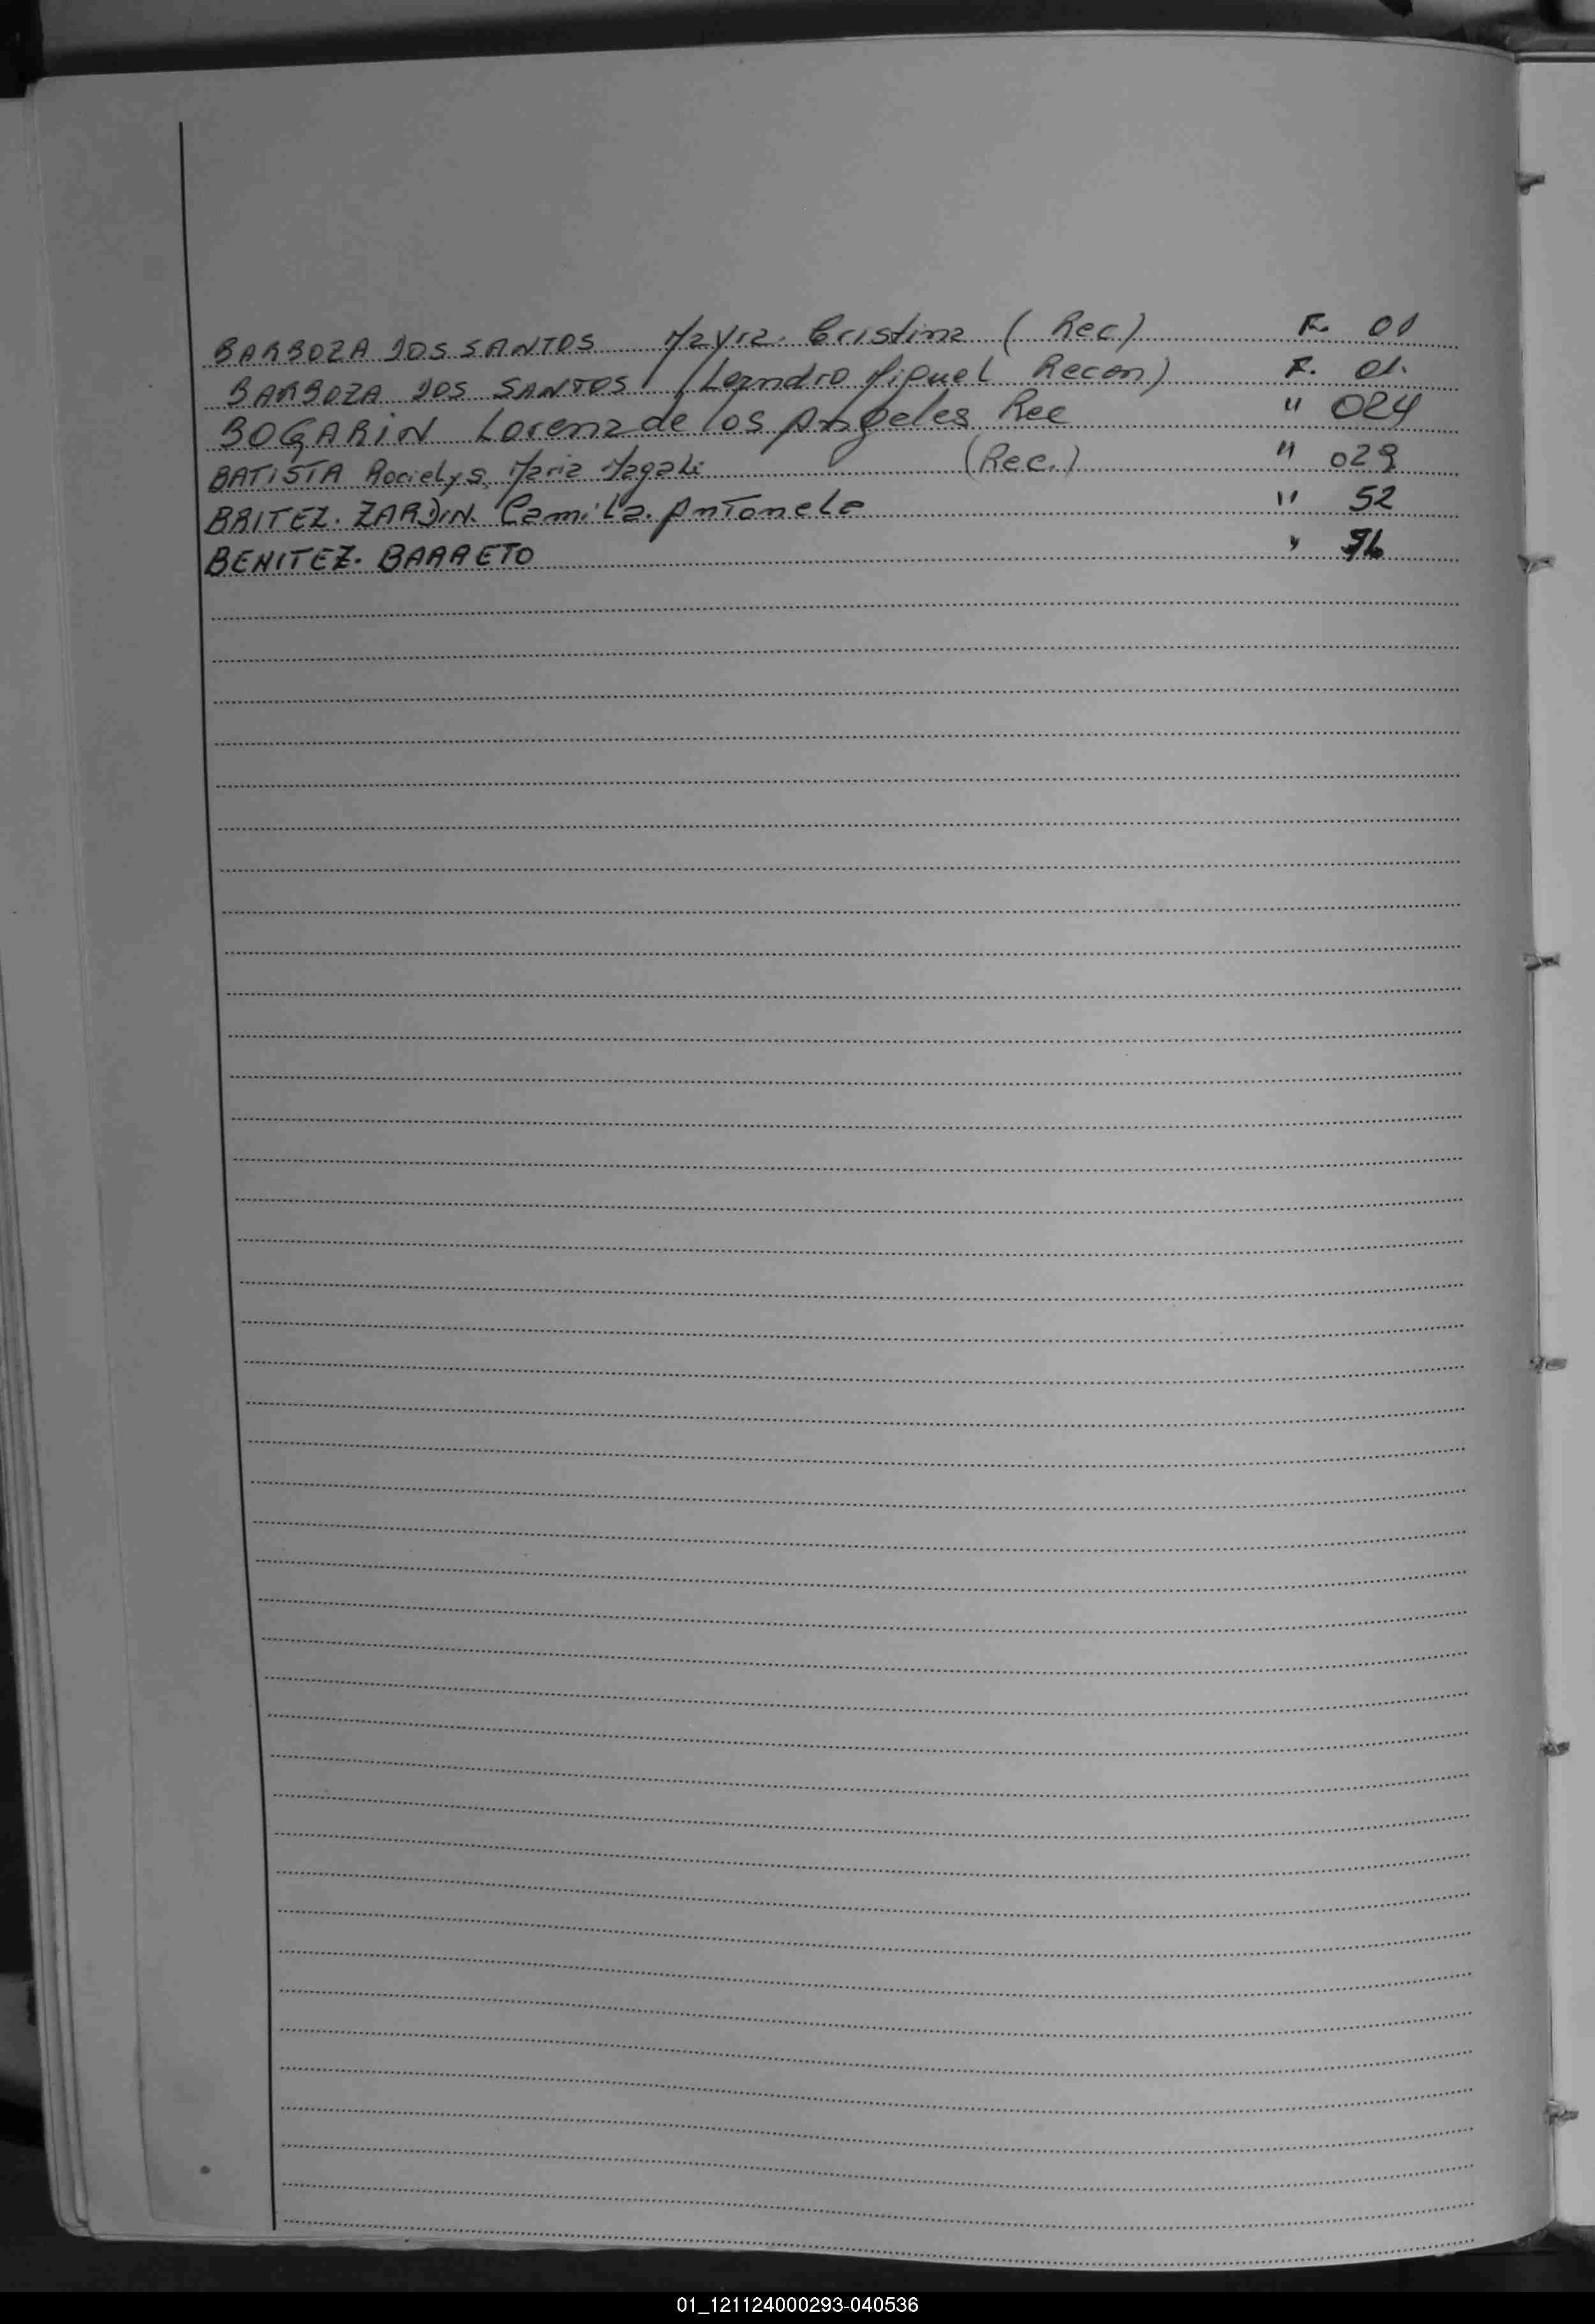 BARBOZA DOS SANTOS Mayra. Cristina ( Rec) F. 01
BARBOZA DOS SANTOS (Leandro Miguel Recon) F. 01.
BOGARIN Lorena de los Angeles Rec " 024
BATISTA Rocielys Maria Magali (Rec.) " 029
BRITEZ. ZARDIN. Camila. Antonela " 52
BENITEZ. BARRETO " 96
01_121124000293-040536